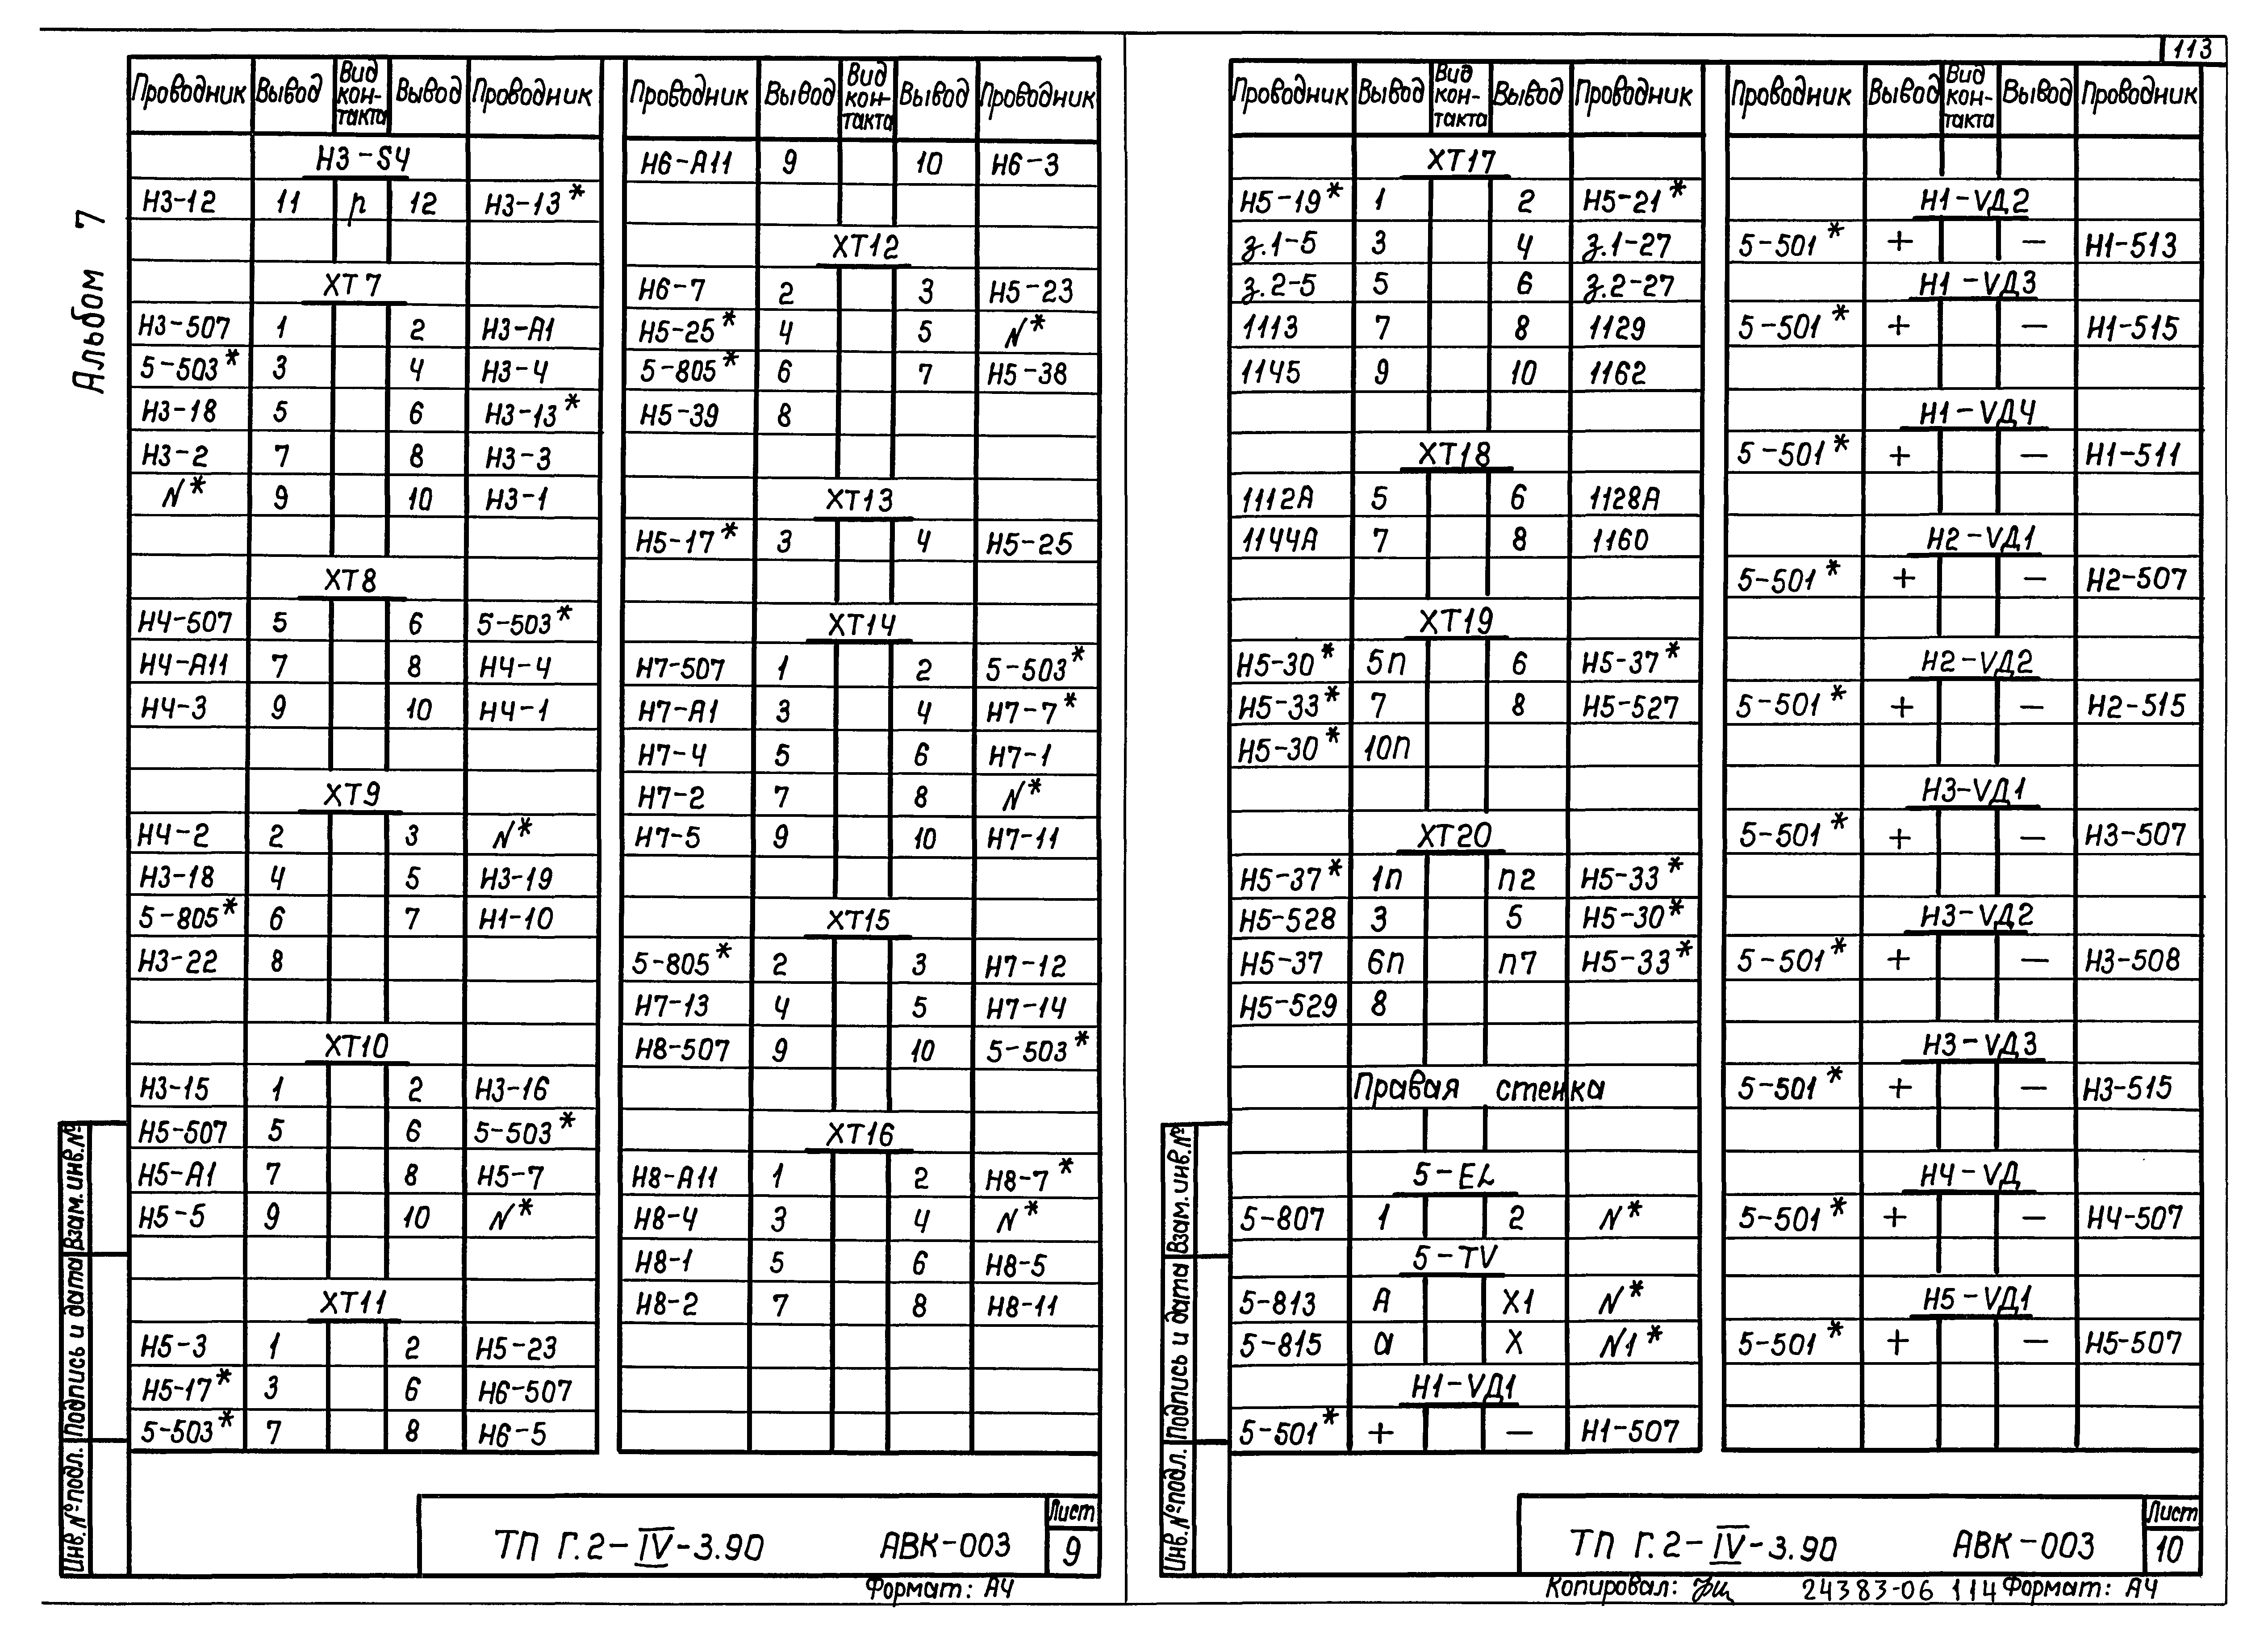 113
Альбом 7
Проводник Вывод Вид кон- такта Вывод Проводник
Н3-S4
Н3-12 11 р 12 Н3-13*
ХТ7
Н3-507 1 2 Н3-А1
5-503* 3 4 Н3-4
Н3-18 5 6 Н3-13*
Н3-2 7 8 Н3-3
N* 9 10 Н3-1
ХТ8
Н4-507 5 6 5-503*
Н4-А11 7 8 Н4-4
Н4-3 9 10 Н4-1
ХТ9
Н4-2 2 3 N*
Н3-18 4 5 Н3-19
5-805* 6 7 Н1-10
Н3-22 8
ХТ10
Н3-15 1 2 Н3-16
Н5-507 5 6 5-503*
Н5-А1 7 8 Н5-7
Н5-5 9 10 N*
ХТ11
Н5-3 1 2 Н5-23
Н5-17* 3 6 Н6-507
5-503* 7 8 Н6-5
Проводник Вывод Вид кон- такта Вывод Проводник
Н6-А11 9 10 Н6-3
ХТ12
Н6-7 2 3 Н5-23
Н5-25* 4 5 N*
5-805* 6 7 Н5-38
Н5-39 8
ХТ13
Н5-17* 3 4 Н5-25
ХТ14
Н7-507 1 2 5-503*
Н7-А1 3 4 Н7-7*
Н7-4 5 6 Н7-1
Н7-2 7 8 N*
Н7-5 9 10 Н7-11
ХТ15
5-805* 2 3 Н7-12
Н7-13 4 5 Н7-14
Н8-507 9 10 5-503*
ХТ16
Н8-А11 1 2 Н8-7*
Н8-4 3 4 N*
Н8-1 5 6 Н8-5
Н8-2 7 8 Н8-11
Инв.№подл. Подпись и дата Взам.инв.№
ТП Г.2-IV-3.90 АВК-003
Лист
9
Формат: А4
Проводник Вывод Вид кон- такта Вывод Проводник
ХТ17
Н5-19* 1 2 Н5-21*
з.1-5 3 4 з.1-27
з.2-5 5 6 з.2-27
1113 7 8 1129
1145 9 10 1162
ХТ18
1112А 5 6 1128А
1144А 7 8 1160
ХТ19
Н5-30* 5п 6 Н5-37*
Н5-33* 7 8 Н5-527
Н5-30* 10п
ХТ20
Н5-37* 1п п2 Н5-33*
Н5-528 3 5 Н5-30*
Н5-37 6п п7 Н5-33*
Н5-529 8
Правая стенка
5-EL
5-807 1 2 N*
5-TV
5-813 А Х1 N*
5-815 а Х N1*
Н1-VД1
5-501* + − Н1-507
Проводник Вывод Вид кон- такта Вывод Проводник
Н1-VД2
5-501* + − Н1-513
Н1-VД3
5-501* + − Н1-515
Н1-VД4
5-501* + − Н1-511
Н2-VД1
5-501* + − Н2-507
Н2-VД2
5-501* + − Н2-515
Н3-VД1
5-501* + − Н3-507
Н3-VД2
5-501* + − Н3-508
Н3-VД3
5-501* + − Н3-515
Н4-VД
5-501* + − Н4-507
Н5-VД1
5-501* + − Н5-507
Инв.№подл. Подпись и дата Взам.инв.№
ТП Г.2-IV-3.90 АВК-003
Лист
10
Копировал: 24383-06 114 Формат: А4